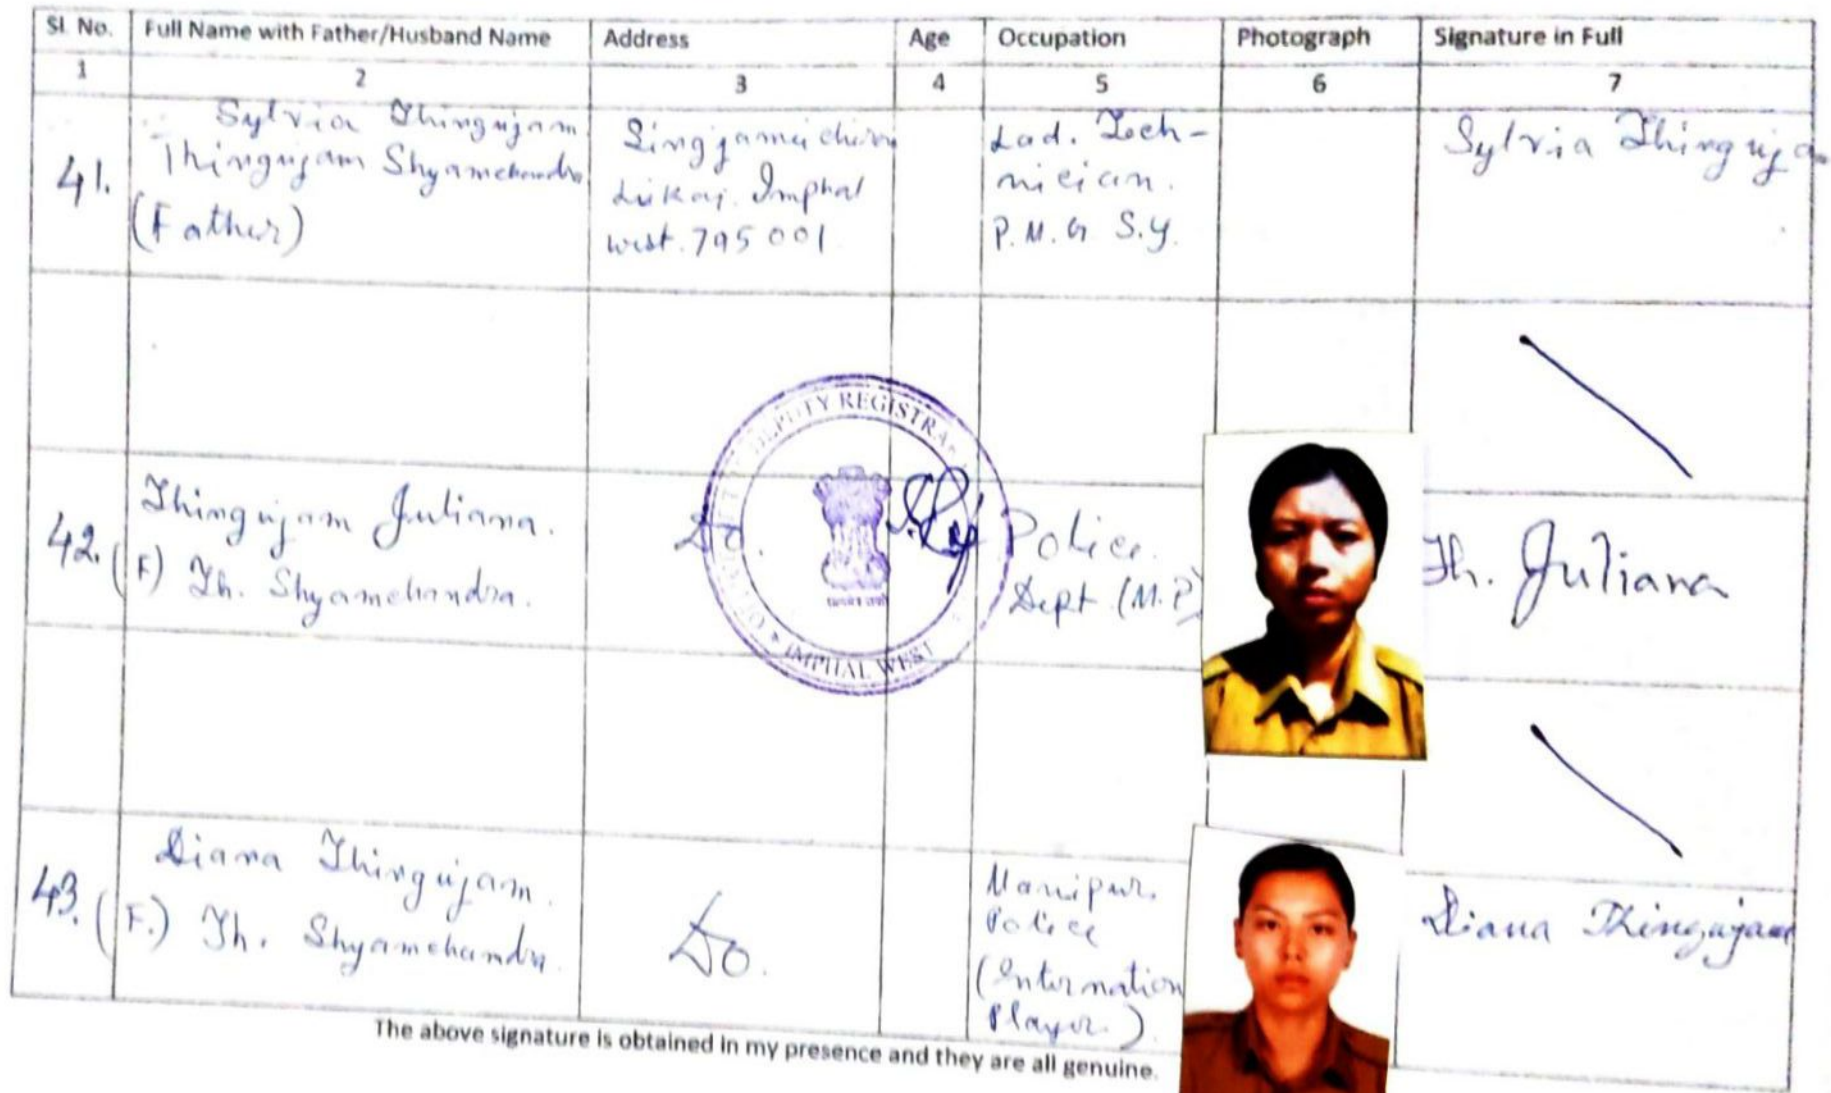 Sl. No. Full Name with Father/Husband Name Address Age Occupation Photograph Signature in Full
1 2 3 4 5 6 7
41. Sylvia Thingujam
Thingujam Shyamchandra
(Father)
Singjamei chirom
Leikai. Imphal
west. 795 001
Lad. Tech-
nician.
P.M.G S.Y.
Sylvia Thingujam
DEPUTY REGISTRAR
IMPHAL WEST
42. Thingujam Juliana.
(F) Th. Shyamchandra.
Do.
Police.
Dept. (M.P)
Th. Juliana
43. Diana Thingujam.
(F.) Th. Shyamchandra.
Do.
Manipur
Police
(Internation
Player.)
Diana Thingujam
The above signature is obtained in my presence and they are all genuine.